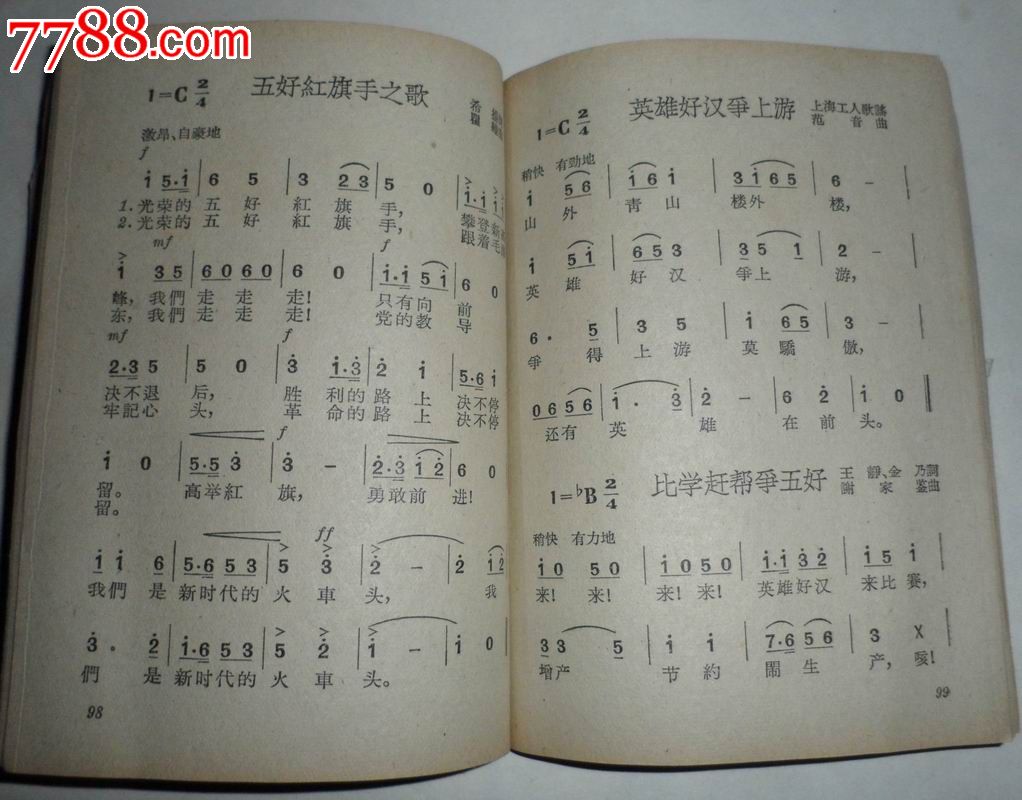 7788.com
五好紅旗手之歌
1=C 2/4
希
激昂、自豪地
f
i 5·i 6 5 3 2 3 5 0 i·i
1. 光荣的 五 好 紅 旗 手, 攀登
2. 光荣的 五 好 紅 旗 手, 跟着毛
mf f
i 3 5 6 0 6 0 6 0 i·i 5 i 6 0
峰, 我們 走 走 走! 只有向 前
东, 我們 走 走 走! 党的教 导
mf f
2·3 5 5 0 3 i·3 2 i 5·6 i
决不退 后, 胜 利的 路 上 决不停
牢記心 头, 革 命的 路 上 决不停
f
i 0 5·5 3 3 - 2·3 i 2 6 0
留。 高举紅 旗, 勇敢前 进!
留。
ff
i i 6 5·6 5 3 5 3 2 - 2 i 2
我們 是 新时代的 火 車 头, 我
3 · 2 i·6 5 3 5 2 i - i 0
們 是 新时代的 火 車 头。
98
英雄好汉爭上游
1=C 2/4
上海工人歌謠
范 音 曲
稍快 有勁地
i 5 6 i 6 i 3 i 6 5 6 -
山 外 青 山 楼外 楼,
i 5 i 6 5 3 3 5 i 2 -
英 雄 好 汉 爭上 游,
6 · 5 3 5 i 6 5 3 -
爭 得 上 游 莫 驕 傲,
0 6 5 6 i · 3 2 - 6 2 i 0
还有 英 雄 在 前 头。
比学赶帮爭五好
1=♭B 2/4
王 靜、金 乃詞
謝 家 鉴曲
稍快 有力地
i 0 5 0 i 0 5 0 i·i 3 2 i 5 i
来! 来! 来! 来! 英雄好汉 来比賽,
3 3 5 i i 7·6 5 6 3 X
增产 节 約 鬧 生 产, 咳!
99